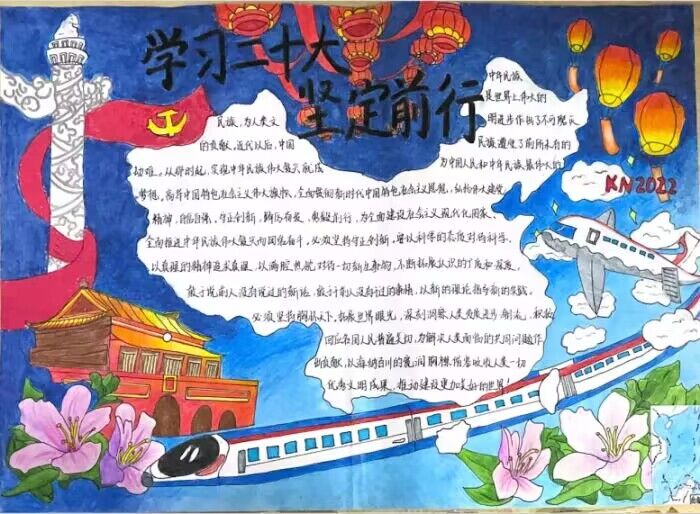 学习二十大
坚定前行
中华民族
是世界上伟大的
民族，为人类文
明进步作出了不可磨灭
的贡献。近代以后，中国
民族遭受了前所未有的
劫难。从那时起，实现中华民族伟大复兴就成
为中国人民和中华民族最伟大的
梦想。高举中国特色社会主义伟大旗帜、全面贯彻新时代中国特色社会主义思想，弘扬伟大建党
精神，自信自强、守正创新，踔厉奋发、勇毅前行，为全面建设社会主义现代化国家、
全面推进中华民族伟大复兴而团结奋斗。必须坚持守正创新。要以科学的态度对待科学、
以真理的精神追求真理，以满腔热忱对待一切新生事物，不断拓展认识的广度和深度，
敢于说前人没有说过的新话，敢于干前人没有干过的事情，以新的理论指导新的实践。
必须坚持胸怀天下，拓展世界眼光，深刻洞察人类发展进步潮流，积极
回应各国人民普遍关切，为解决人类面临的共同问题作
出贡献，以海纳百川的宽阔胸襟借鉴吸收人类一切
优秀文明成果，推动建设更加美好的世界！
KN2022